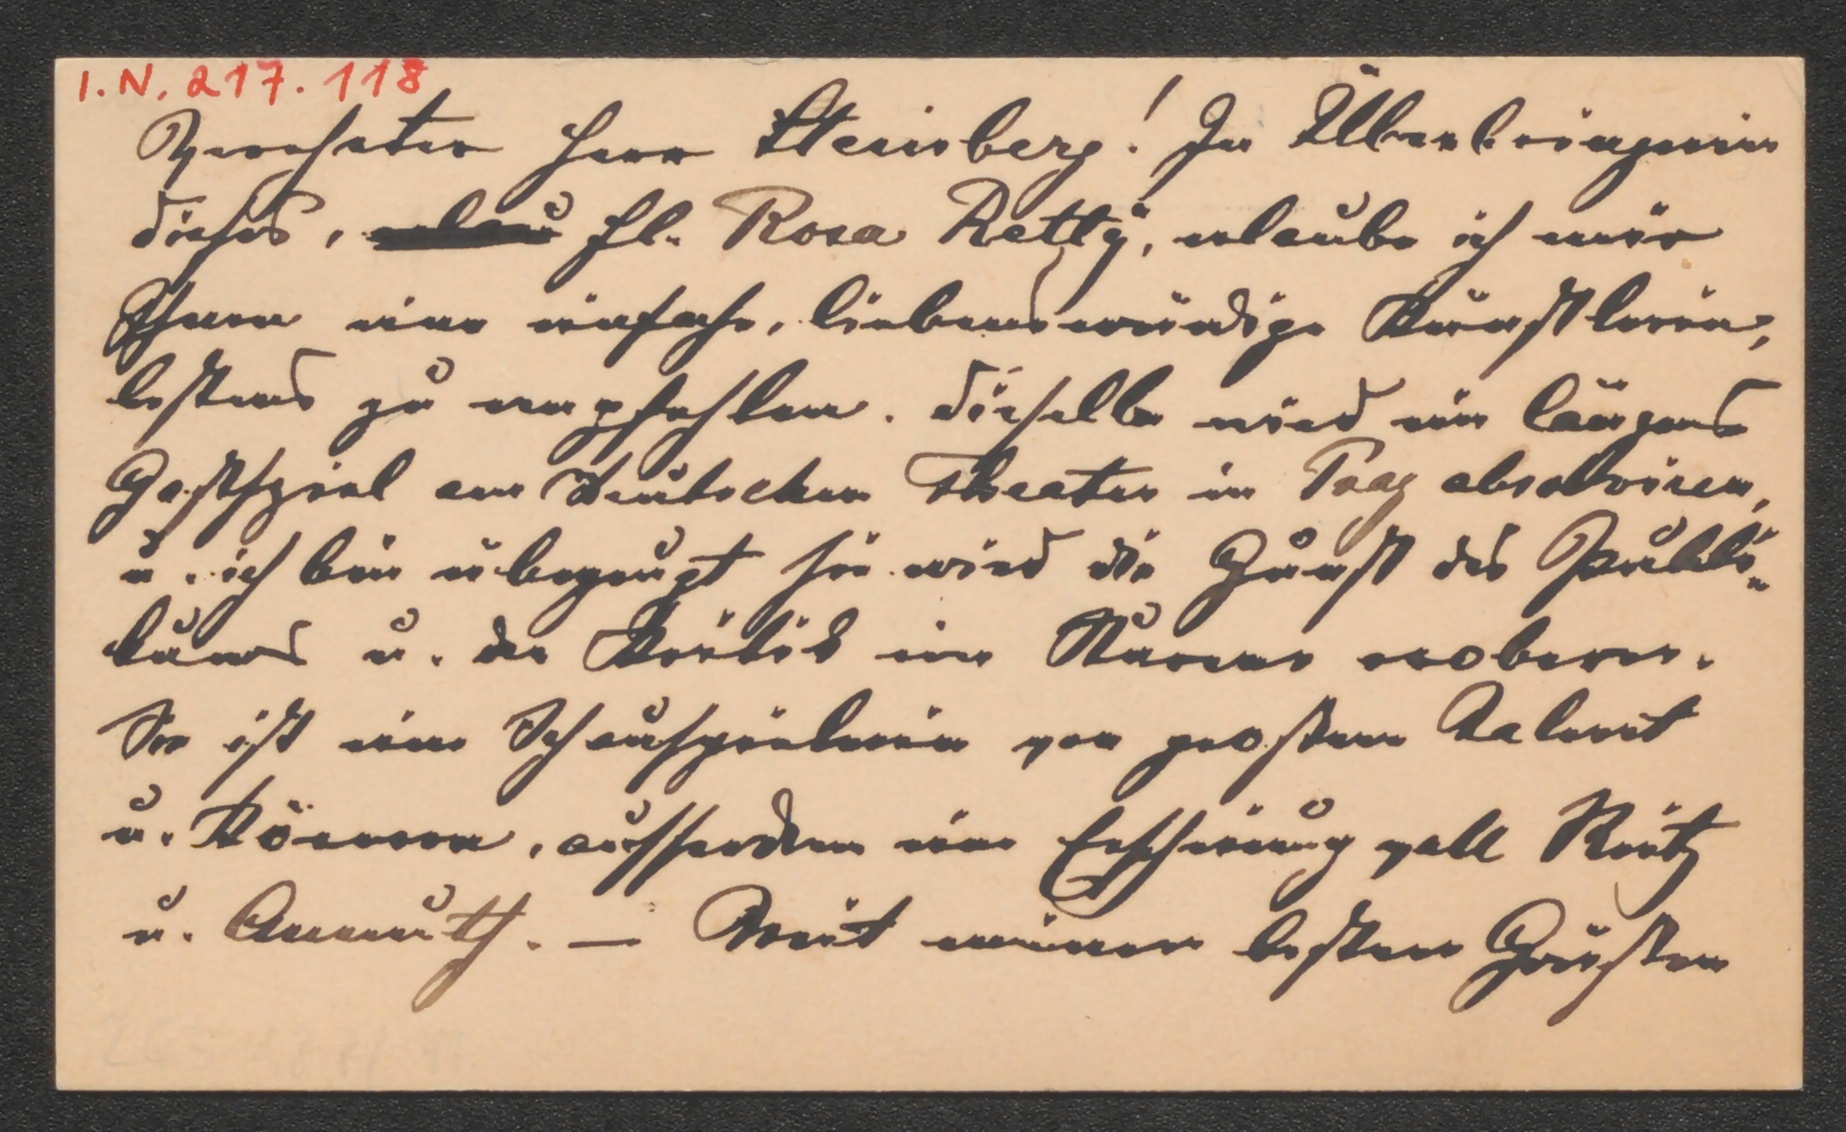 I.N. 217.118
Verehrter Herr Steinberg! In Überbringerin
dieses, Frl. Rosa Retty, erlaube ich mir
Ihnen eine einfache, liebenswürdige Künstlerin,
bestens zu empfehlen. Dieselbe wird ein längeres
Gastspiel am Deutschen Theater in Prag absolviren,
u. ich bin überzeugt sie wird die Gunst des Publi-
kums u. der Kritik im Sturme erobern.
Sie ist eine Schauspielerin von großem Talent
u. Können, ausserdem eine Erscheinung voll Reitz
u. Anmuth. — Mit meinen besten Grüßen